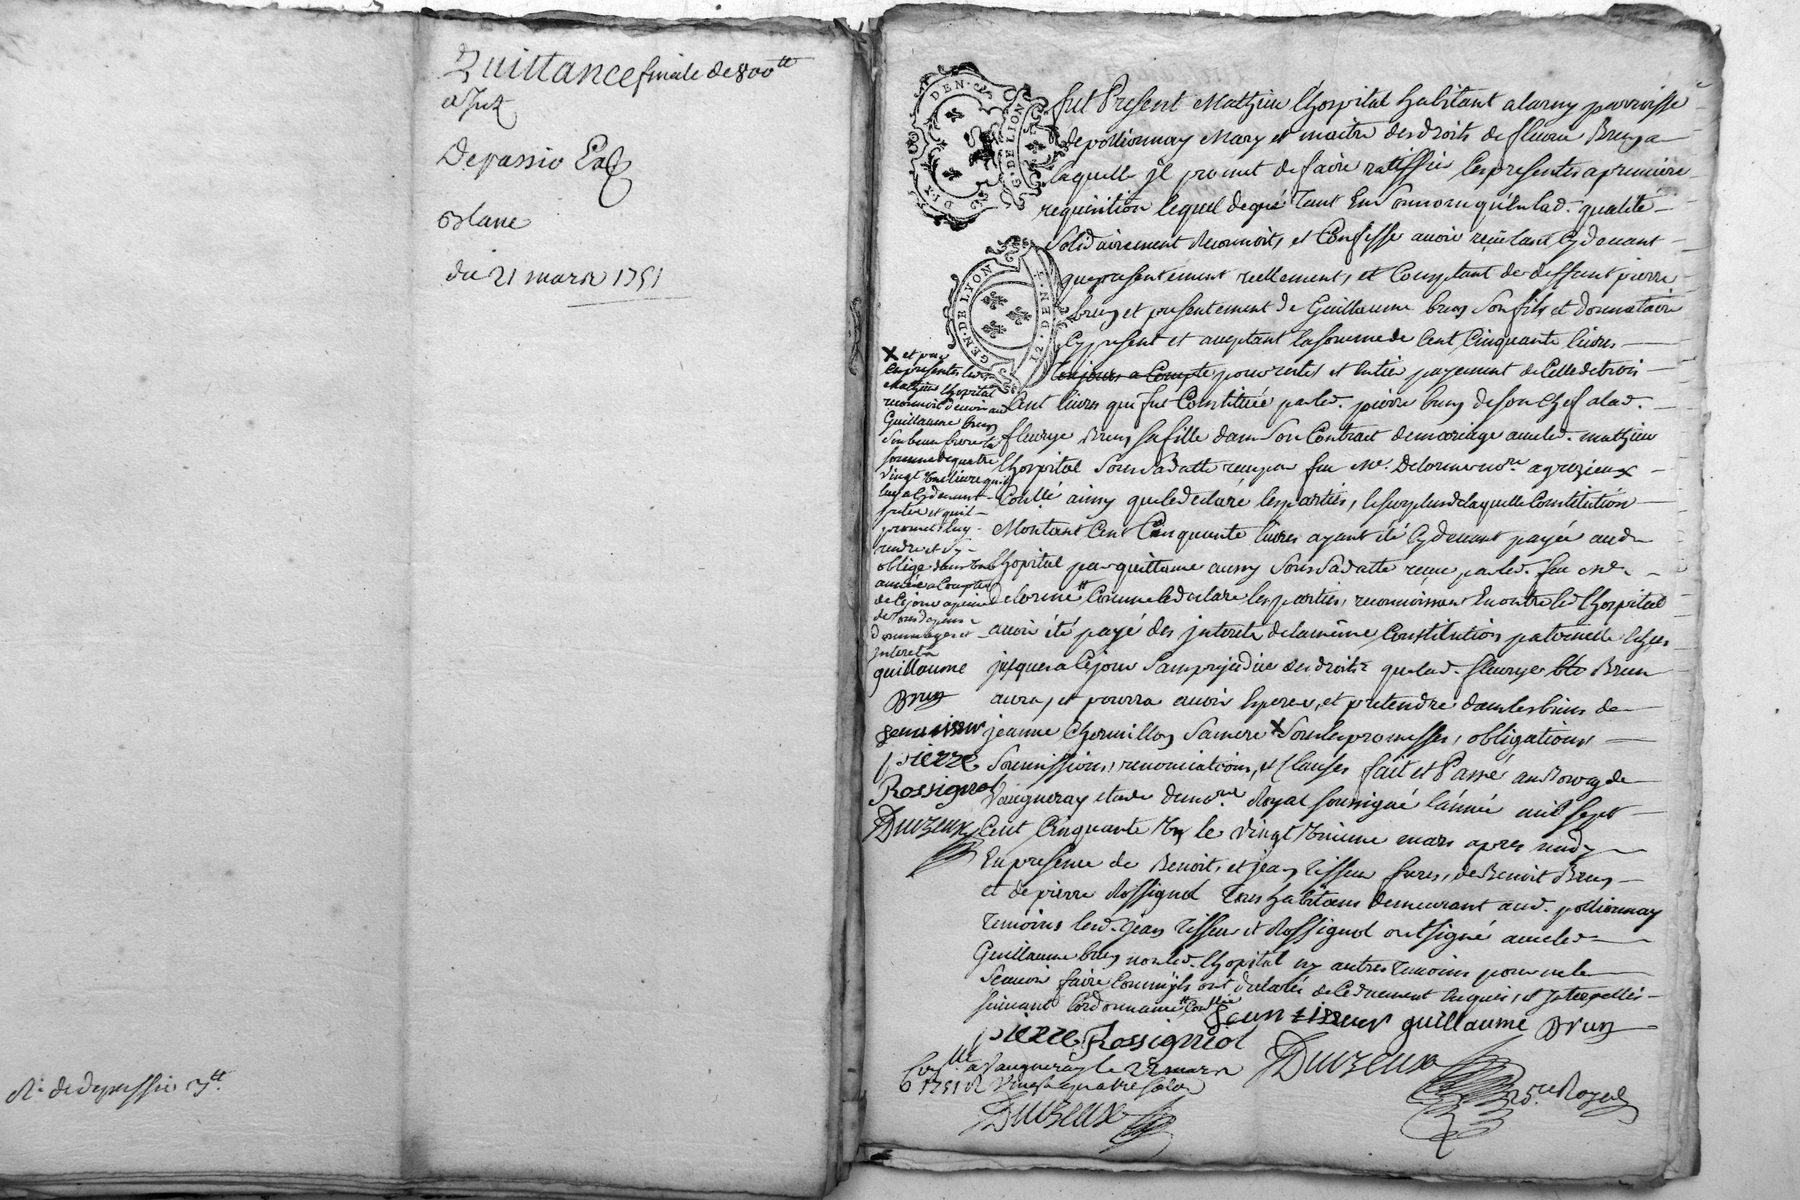 Quittance finale de 800tt
du 21 mars 1751
Rc. de depassic 3tt
DIX DEN.
G. DE LION
GEN. DE LYON
12. DEN.
fut Present Mathieu lhospital habitant a larny parroisse
de pollionnay Mary et maitre des droits de fleurie Brun a
laquelle jl promet de faire rattiffier les presentes a premiere
requisition lequel de gré tant En son nom qu'en lad. qualité
solidairement reconnoit, et Confesse avoir reçu tant Cy devant
que presentement reellement, et Comptant de deffunt pierre
brun et presentement de Guillaume brun son fils et donnataire
Cy present et acceptant la somme de Cent Cinquante livres
pour reste, et entier payement de Celle de trois
Cent livres qui fut Constituée par led. pierre brun de son Chef a lad.
fleurye Brun sa fille dans son Contract de mariage avec led. mathieu
lhospital sous sa datte reçu par feu Me. Delorme nore. a grezieux
Conllé ainsy que le declaré les parties, le surplus de laquelle Constitution
Montant Cent Cinquante livres ayant été Cy devant payée aud.
lhopital par quittance aussy sous sa datte reçue par led. feu Me.
delorme Comme le declare les parties, reconnoissant En outre led lhospital
avoir été payé des jnterets de la même Constitution paternelle
jusques a Ce jour sans prejudice des droits que lad. fleurye Brun
aura, et pourra avoir esperer, et pretendre dans les biens de
jeanne Chermillon sa mere X sous les promesses, obligations,
soumissions, renonciations, et Clauses fait et Passé au Bourg de
Vaugneray etude du nore. Royal soussigné l'année mil sept
Cent Cinquante Un le vingt Unieme mars apres midy
En presence de Benoit, et jean tisseur freres, de Benoit Brun
et de pierre Rossignol tous habitans demeurant aud. pollionnay
temoins lesd. jean tisseur et Rossignol ont signé avec led.
Guillaume brun non led. lhopital ny autres temoins pour ne le
sçavoir faire Comm'jls ont declarés de Ce duement enquis, et jnterpellés
suivant l'ordonnance
jean tisseur guillaume Brun
pierre Rossignol
Duvzeux
a Vaugneray le 22 mars
1751 R. Vingt quatre sols
Duvzeux
Royal
X et par
Ces presentes led.
Mathieu lhopital
reconnoit devoir aud.
Guillaume brun
son beau frere la
somme de quatre
Vingt Une livre qu'il
luy a Cy devant
pretée et qu'il
promet luy
rendre et s'y
oblige dans Une
année a Compter
de Ce jour a peine
de tous depens
dommages et
jnterets
guillaume
Brun
jean tisseur
pierre
Rossignol
Duvzeux